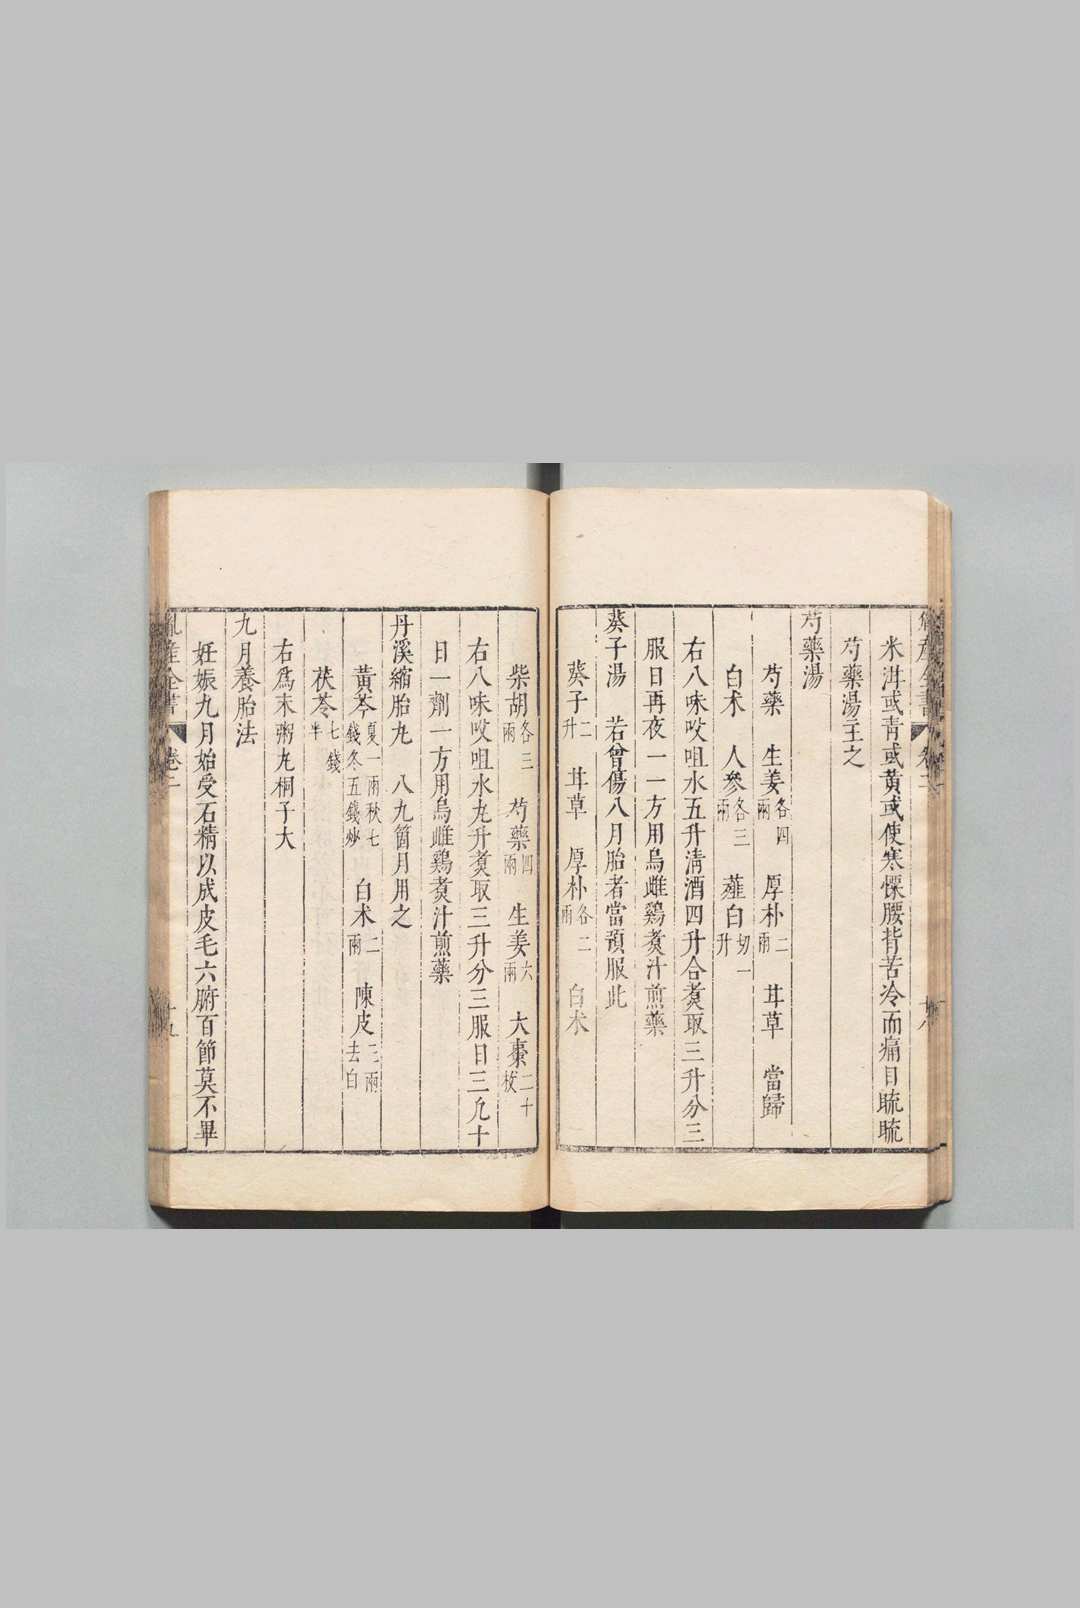 米泔或靑或黃或使寒慄腰背苦冷而痛目𥆧𥆧
芍藥湯主之
芍藥湯
芍藥 生姜各四兩 厚朴二兩 甘草 當歸
白朮 人參各三兩 薤白切一升
右八味㕮咀水五升淸酒四升合煑取三升分三
服日再夜一一方用烏雌鷄煑汁煎藥
葵子湯 若曾傷八月胎者當預服此
葵子二升 甘草 厚朴各二兩 白朮
柴胡各三兩 芍藥四兩 生姜六兩 大棗二十枚
右八味㕮咀水九升煑取三升分三服日三凡十
日一劑一方用烏雌鷄煑汁煎藥
丹溪縮胎丸 八九箇月用之
黃芩夏一兩秋七錢冬五錢炒 白朮二兩 陳皮三兩去白
茯苓七錢半
右爲末粥丸桐子大
九月養胎法
妊娠九月始受石精以成皮毛六腑百節莫不畢
產全書 卷二 十九